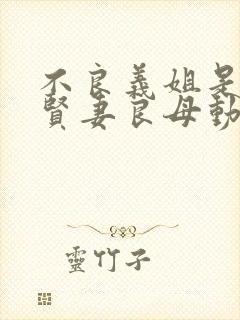 不良義姐是
賢妻良母動
靈竹子